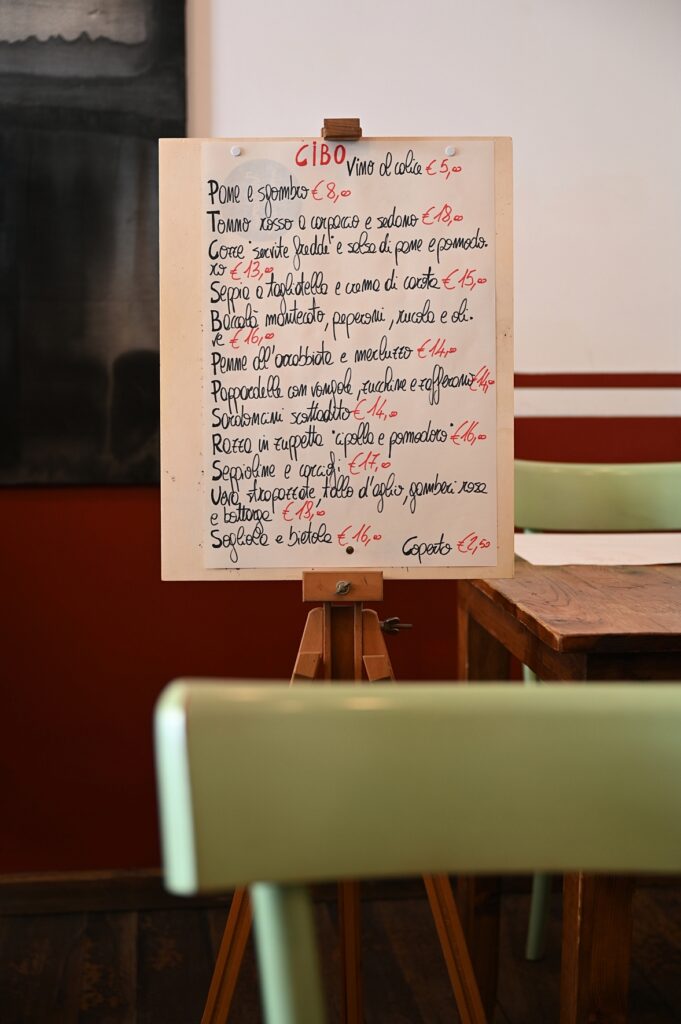 CIBO Vino al calice €5,00
Pane e sgombro €8,00
Tonno rosso a carpaccio e sedano €18,00
Cozze "servite fredde" e salsa di pane e pomodo-
ro €13,00
Seppia a tagliatella e crema di carota €15,00
Baccalà mantecato, peperoni, rucola e oli-
ve €16,00
Penne all'arrabbiata e merluzzo €14,00
Pappardelle con vongole, zucchine e zafferano €14,00
Sardoncini scottadito €14,00
Razza in zuppetta "cipolla e pomodoro" €16,00
Seppioline e carciofi €17,00
Uova strapazzate, tallo d'aglio, gamberi rosa
e bottarga €18,00
Sogliola e bietola €16,00
Coperto €2,50